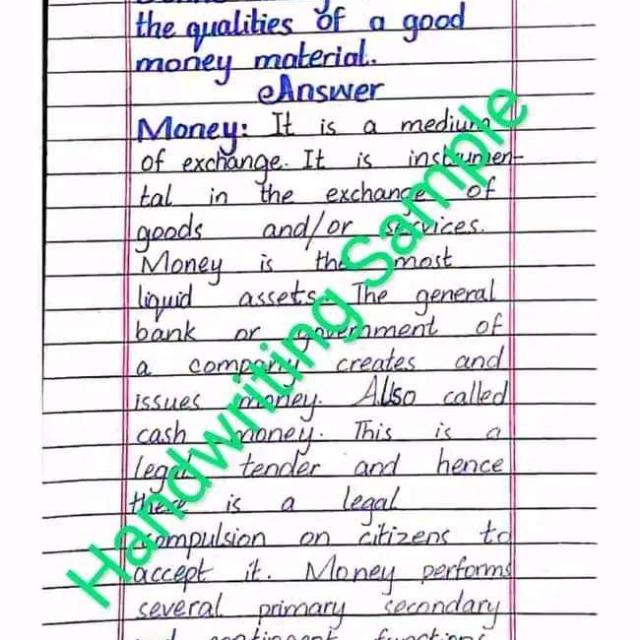 the qualities of a good
money material.
Answer
Money: It is a medium
of exchange. It is instrumen-
tal in the exchange of
goods and/or services.
Money is the most
liquid assets. The general
bank or government of
a company creates and
issues money. Also called
cash money. This is a
legal tender and hence
there is a legal
compulsion on citizens to
accept it. Money performs
several primary secondary
and contingent functions
Handwriting Sample